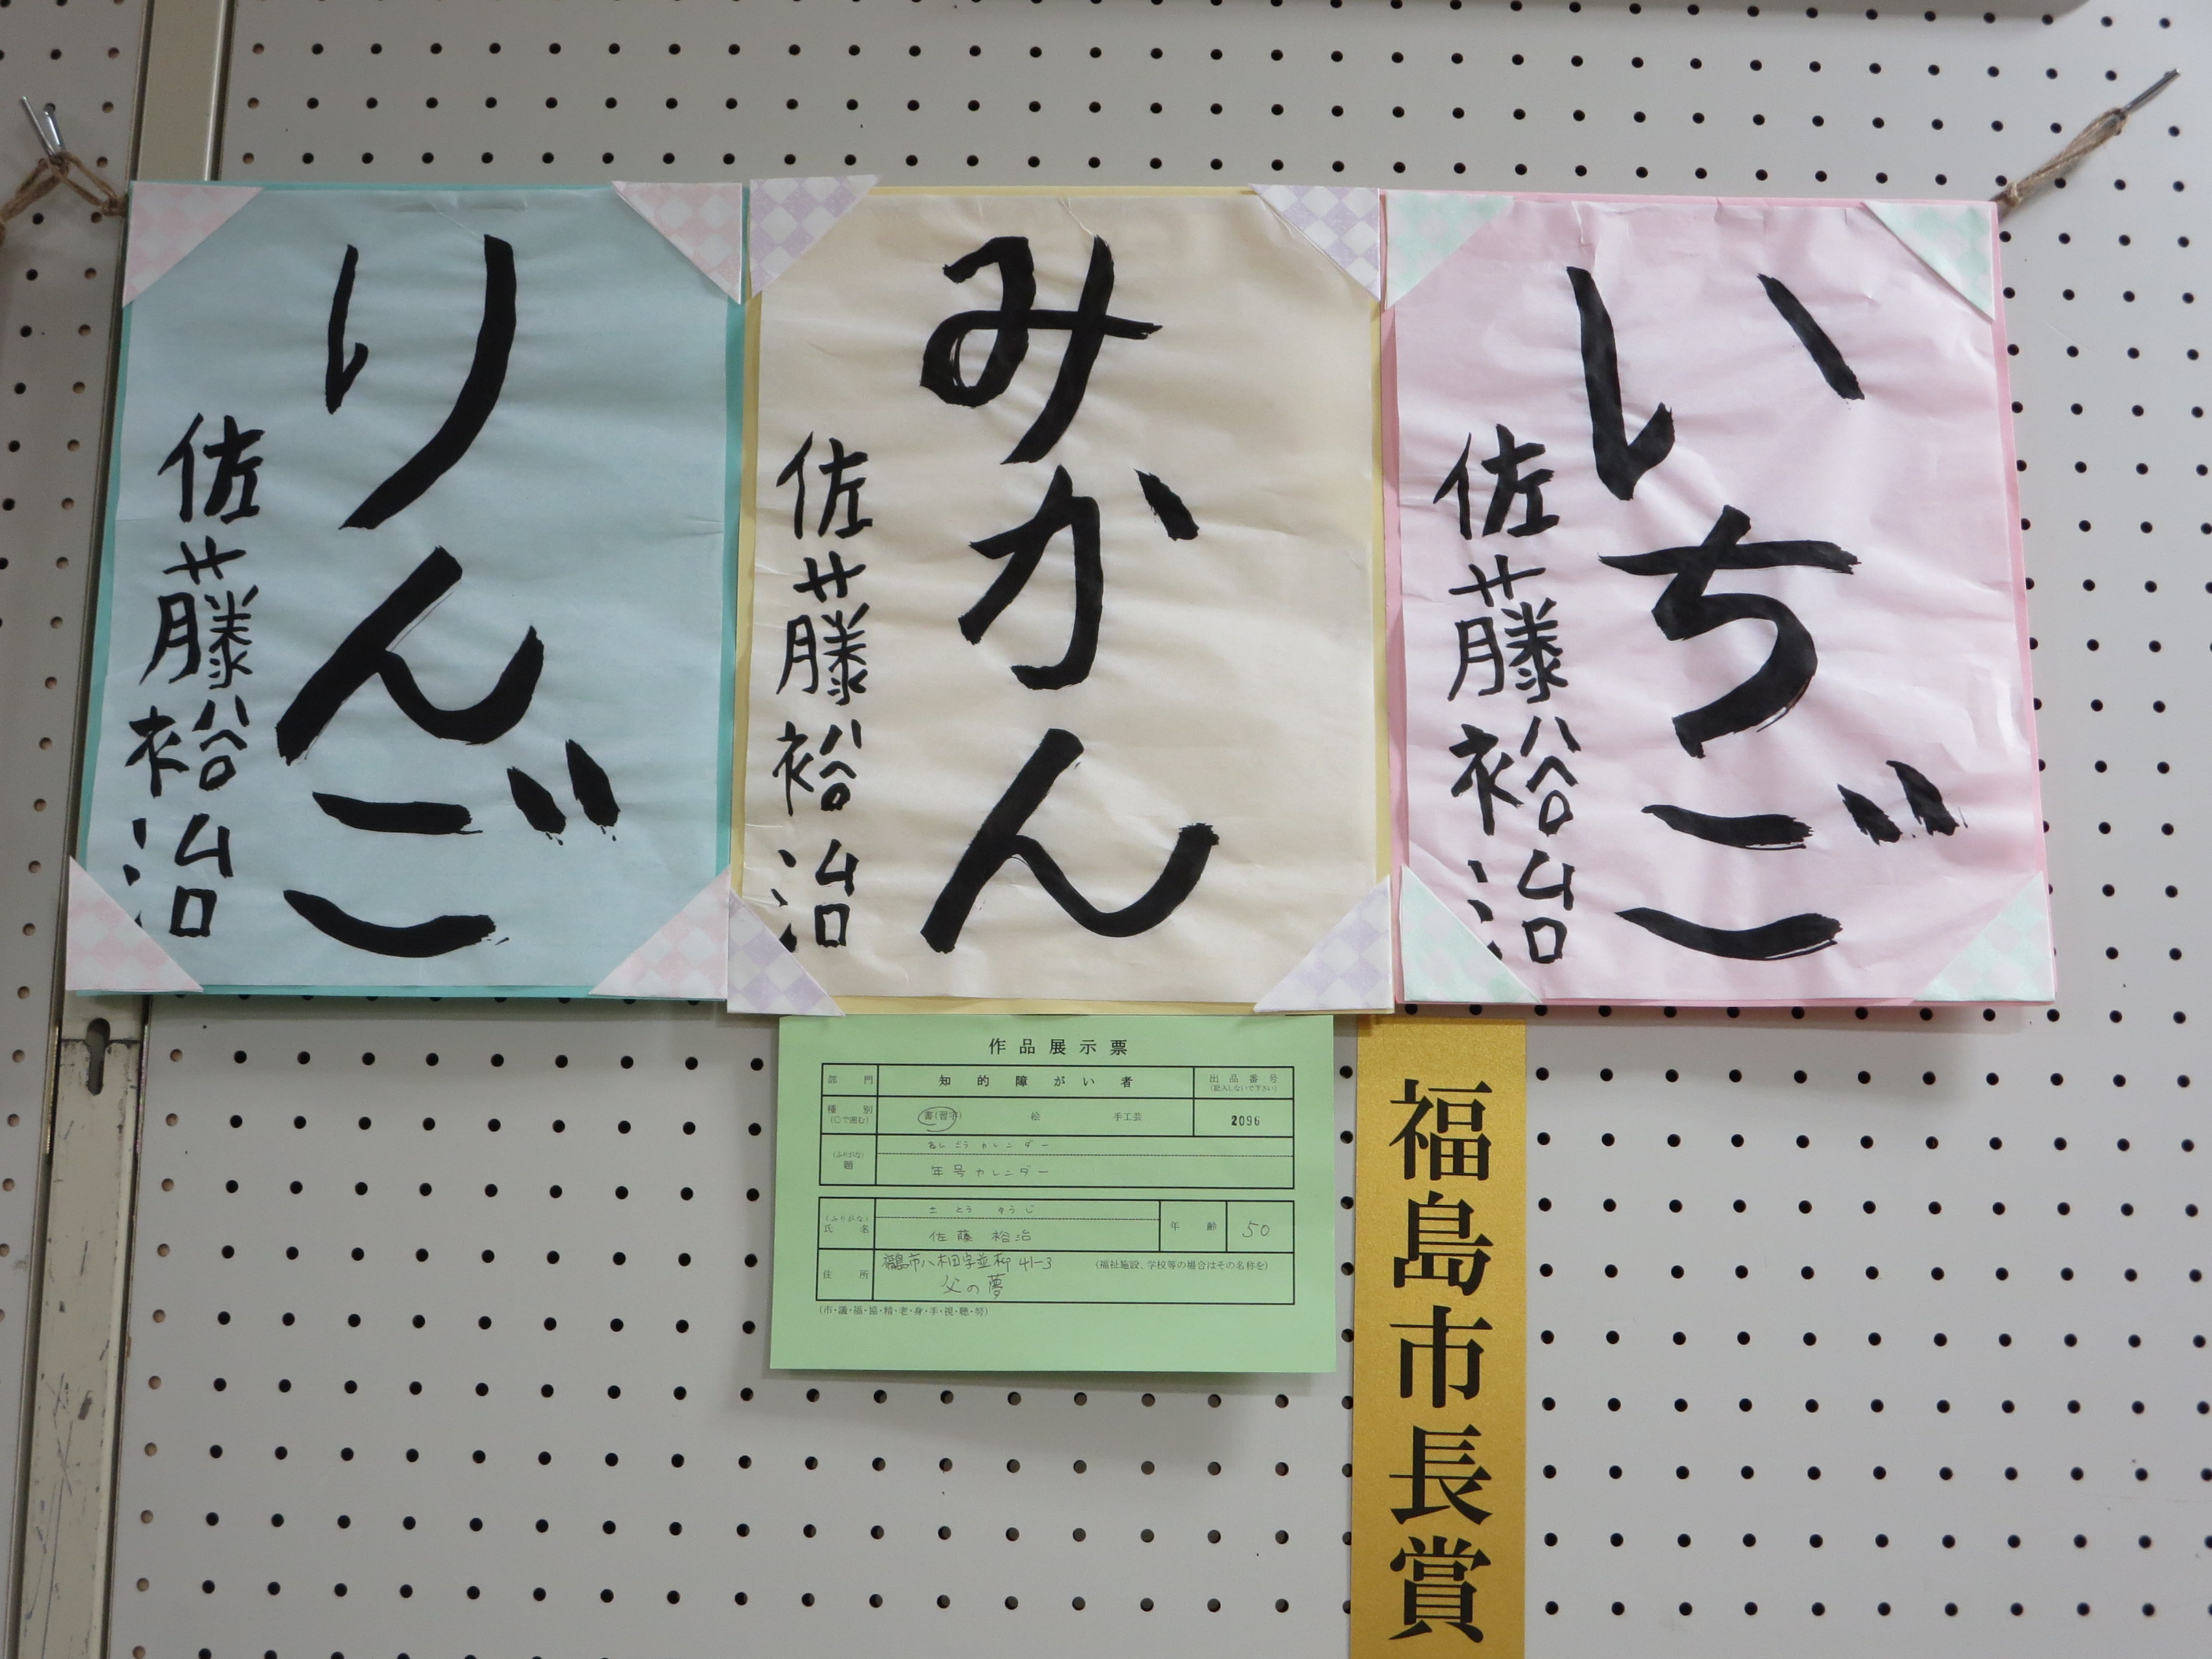 いちご
佐藤裕治
みかん
佐藤裕治
りんご
佐藤裕治
作品展示票
部門 知的障がい者 出品番号
(記入しないで下さい)
種別 書(習字) 絵 手工芸 2096
(○で囲む)
(ふりがな)
題 年号カレンダー
(ふりがな) さとう ゆうじ
氏名 佐藤 裕治 年齢 50
住所 福島市八木田字並柳 41-3 (福祉施設、学校等の場合はその名称を)
父の夢
(市・議・福・協・精・老・身・手・視・聴・労)
福島市長賞